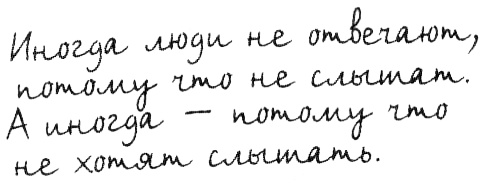 Иногда люди не отвечают,
потому что не слышат.
А иногда – потому что
не хотят слышать.